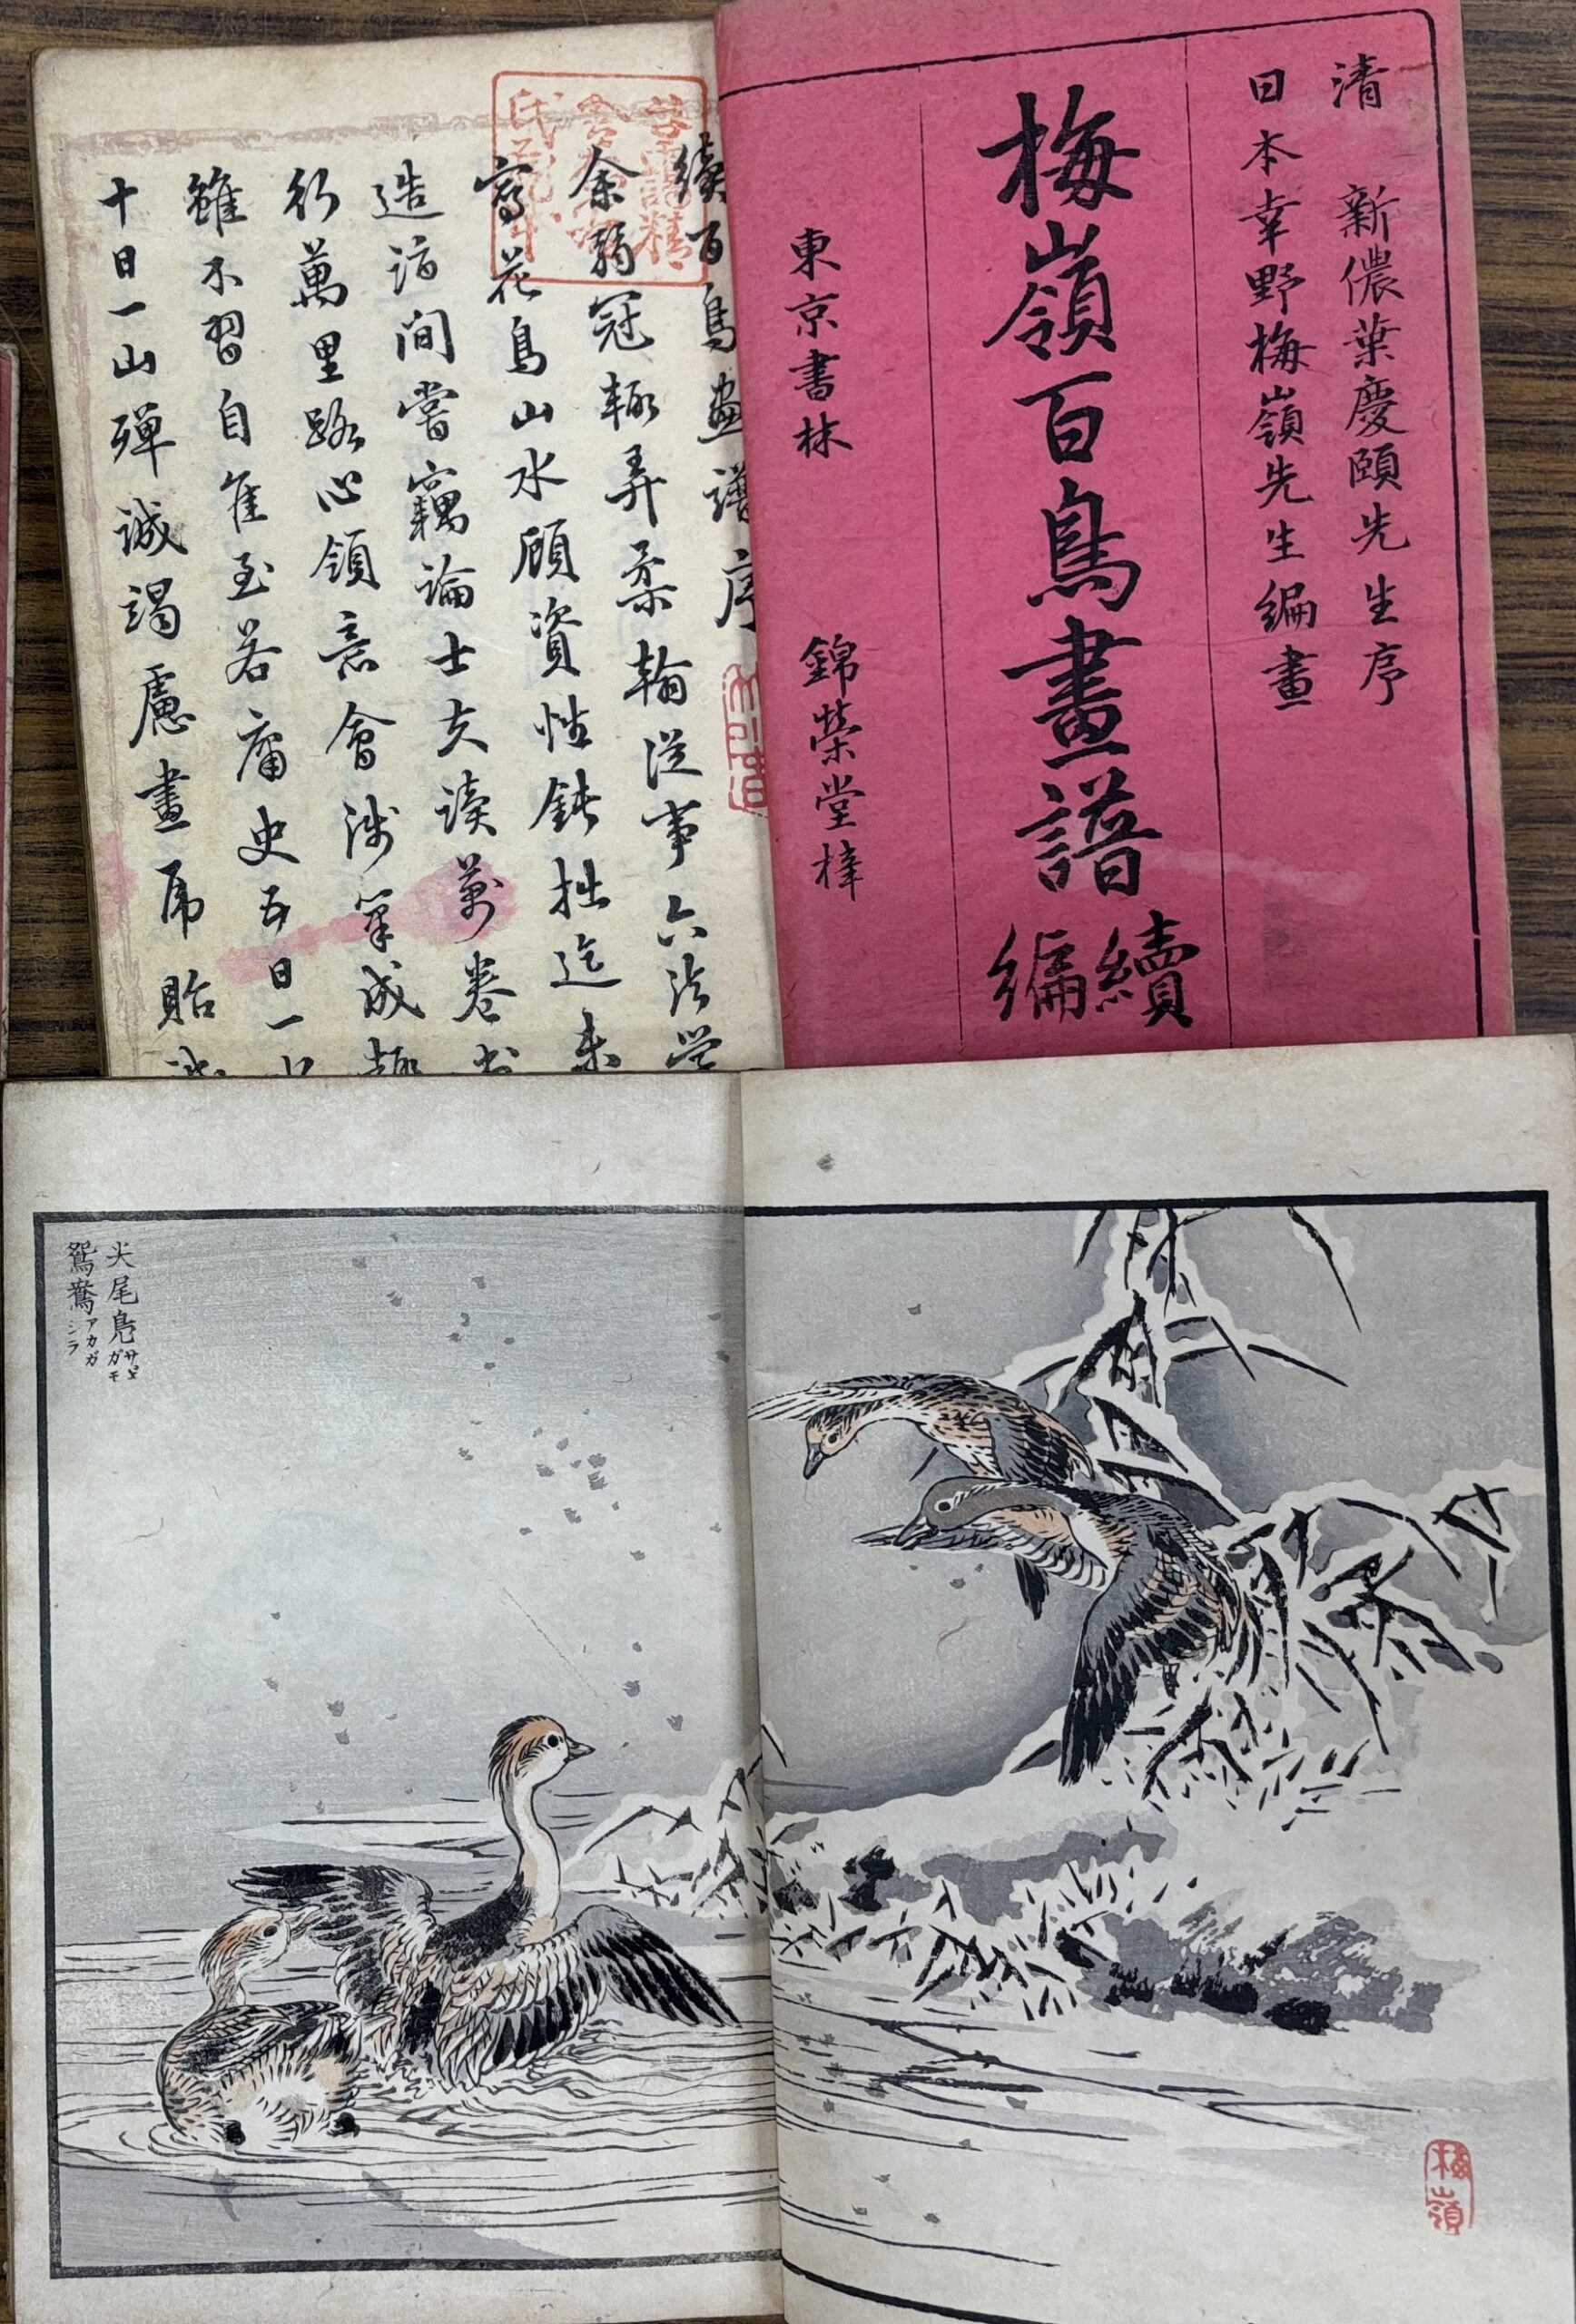 清 新儂葉慶頤先生序
日本幸野梅嶺先生編畫
梅嶺百鳥畫譜
續編
東京書林 錦榮堂梓
續百鳥畫譜序
余弱冠輒弄柔翰從事六法學
寫花鳥山水顧資性鈍拙迄未
造詣間嘗竊論士夫讀萬卷書
行萬里路心領意會涉筆成趣
雖不習自佳至若
史五日一水
十日一山殫誠竭慮畫
貽
尖尾鳧
鴛鴦アカガシラ
梅嶺